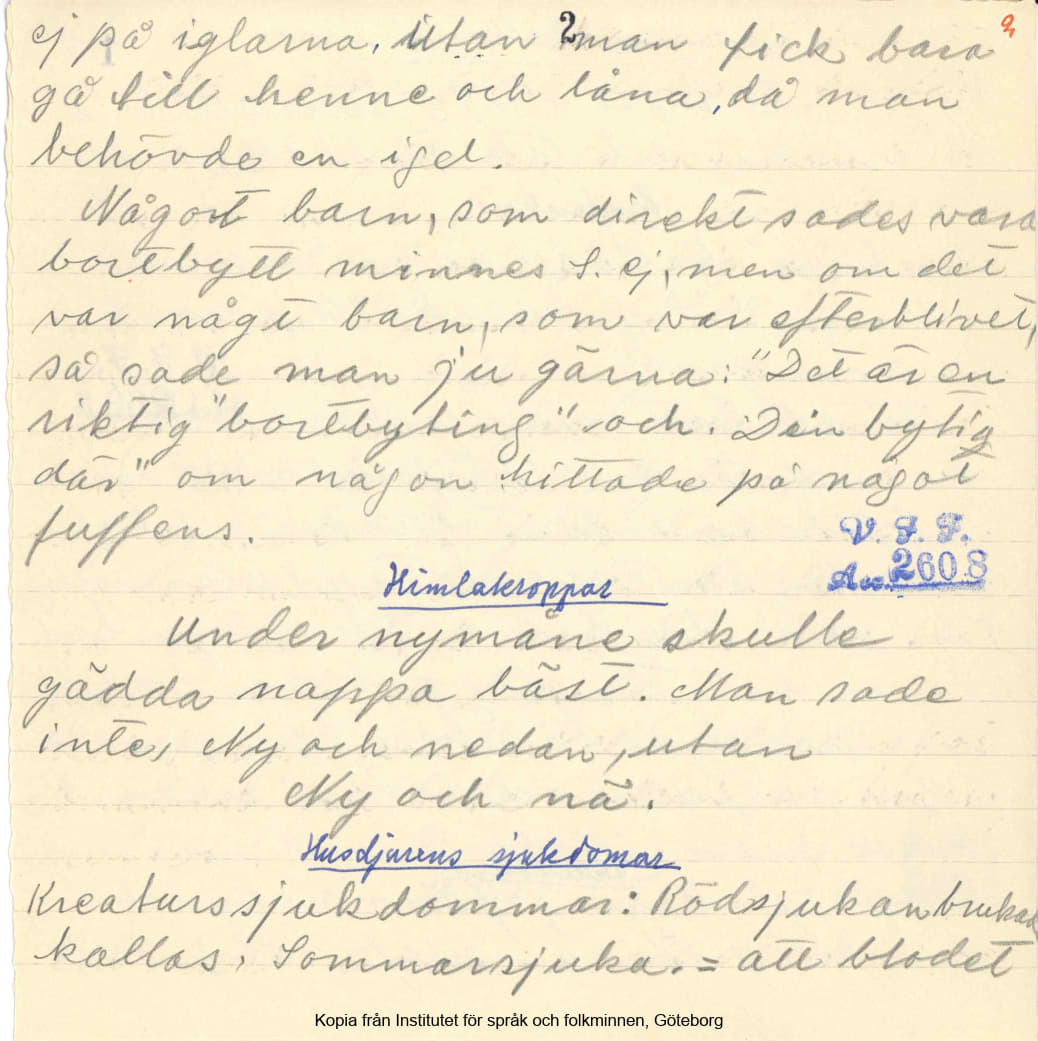 2
ej på iglarna, utan man fick bara
gå till henne och låna, då man
behövde en igel.
Något barn, som direkt sades vara
bortbytt minnes S. ej, men om det
var någt barn, som var efterblivet,
så sade man ju gärna: "Det är en
riktig "bortbyting" och. Den bytig
där" om någon hittade på något
fuffens.
V. F. F.
Acc. 2608
Himlakroppar
Under nymåne skulle
gädda nappa bäst. Man sade
inte, Ny och nedan, utan
Ny och nä.
Husdjurens sjukdomar
Kreaturssjukdommar: Rödsjukan brukade
kallas, Sommarsjuka. = att blodet
Kopia från Institutet för språk och folkminnen, Göteborg